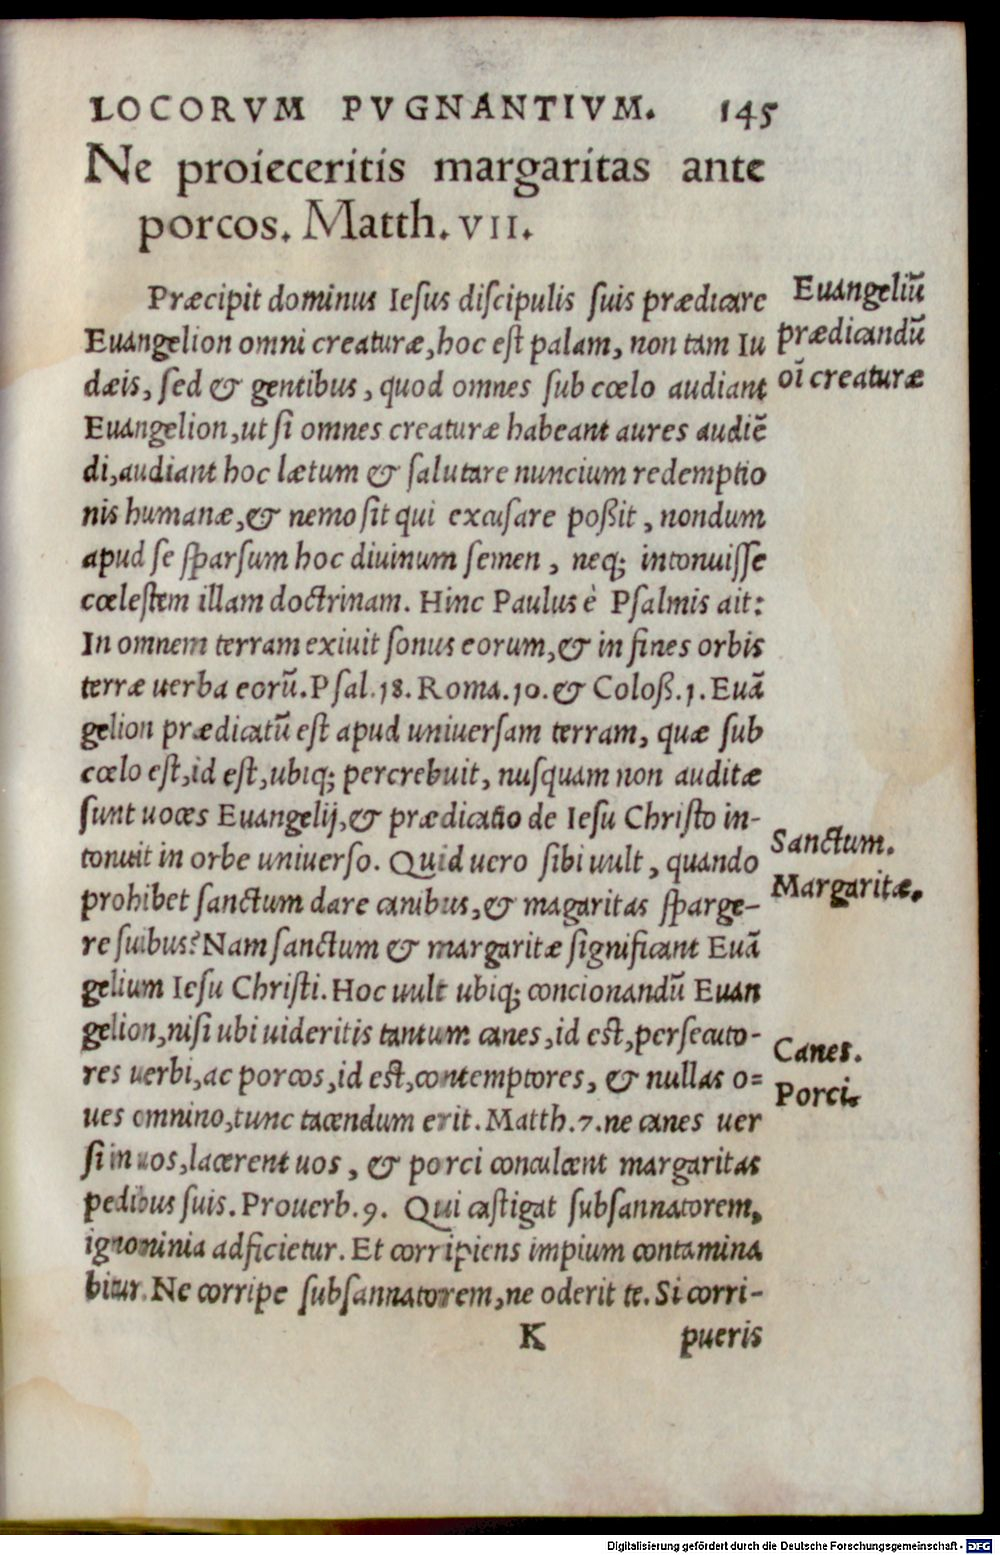 LOCORVM PVGNANTIVM. 145
Ne proieceritis margaritas ante
porcos. Matth. VII.
Præcipit dominus Iesus discipulis suis prædicare
Euangelion omni creaturæ, hoc est palam, non tam Iu
dæis, sed & gentibus, quod omnes sub cœlo audiant
Euangelion, ut si omnes creaturæ habeant aures audiẽ
di, audiant hoc lætum & salutare nuncium redemptio
nis humanæ, & nemo sit qui excusare poßit, nondum
apud se sparsum hoc diuinum semen, neq; intonuisse
cœlestem illam doctrinam. Hinc Paulus è Psalmis ait:
In omnem terram exiuit sonus eorum, & in fines orbis
terræ uerba eorũ. Psal. 18. Roma. 10. & Coloß. 1. Euã
gelion prædicatũ est apud uniuersam terram, quæ sub
cœlo est, id est, ubiq; percrebuit, nusquam non auditæ
sunt uoces Euangelij, & prædicatio de Iesu Christo in-
tonuit in orbe uniuerso. Quid uero sibi uult, quando
prohibet sanctum dare canibus, & magaritas sparge-
re suibus? Nam sanctum & margaritæ significant Euã
gelium Iesu Christi. Hoc uult ubiq; concionandũ Euan
gelion, nisi ubi uideritis tantum canes, id est, persecuto-
res uerbi, ac porcos, id est, contemptores, & nullas o=
ues omnino, tunc tacendum erit. Matth. 7. ne canes uer
si in uos, lacerent uos, & porci conculcent margaritas
pedibus suis. Prouerb. 9. Qui castigat subsannatorem,
ignominia adficietur. Et corripiens impium contamina
bitur. Ne corripe subsannatorem, ne oderit te. Si corri-
K pueris
Euangeliũ
prædicandũ
oĩ creaturæ
Sanctum.
Margaritæ.
Canes.
Porci.
Digitalisierung gefördert durch die Deutsche Forschungsgemeinschaft - DFG